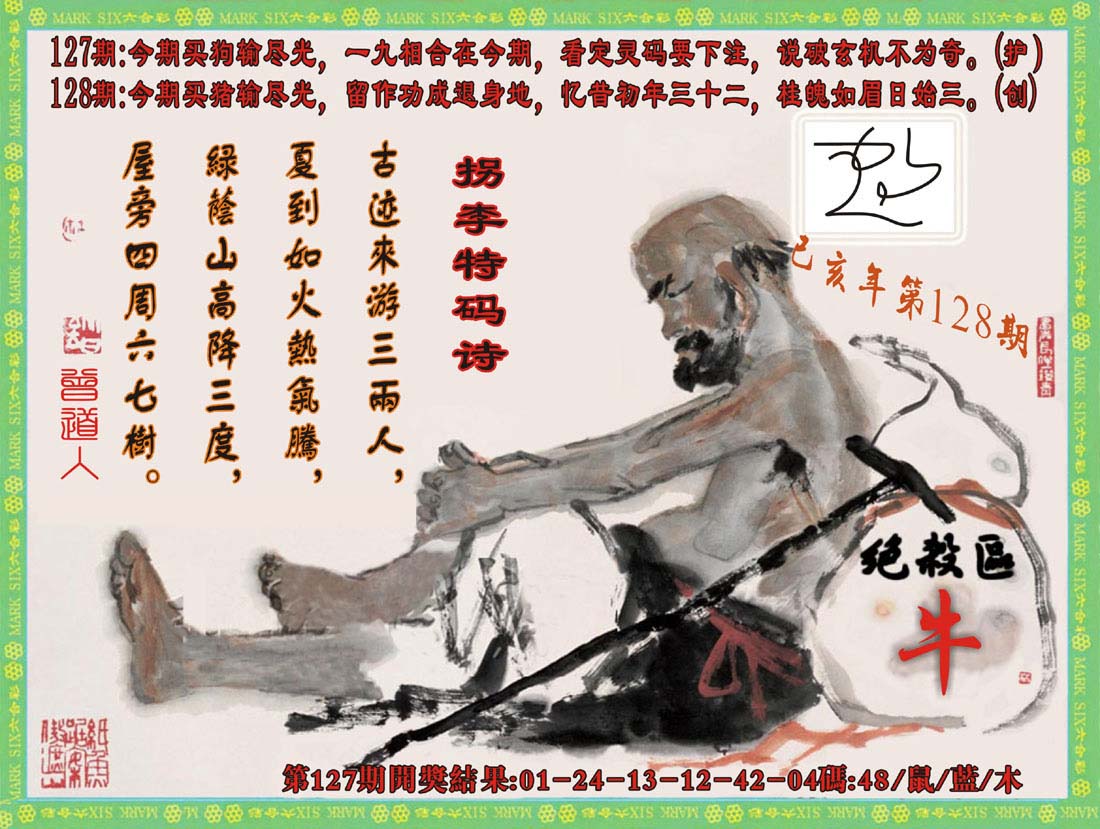 MARK SIX六合彩
127期:今期买狗输尽光，一九相合在今期，看定灵码要下注，说破玄机不为奇。(护)
128期:今期买猪输尽光，留作功成退身地，忆昔初年三十二，桂魄如眉日始三。(创)
己亥年第128期
拐李特码诗
古迹來游三兩人，
夏到如火熱氣騰，
綠蔭山高降三度，
屋旁四周六七樹。
曾道人
绝殺區
牛
第127期開獎結果:01-24-13-12-42-04碼:48/鼠/藍/木